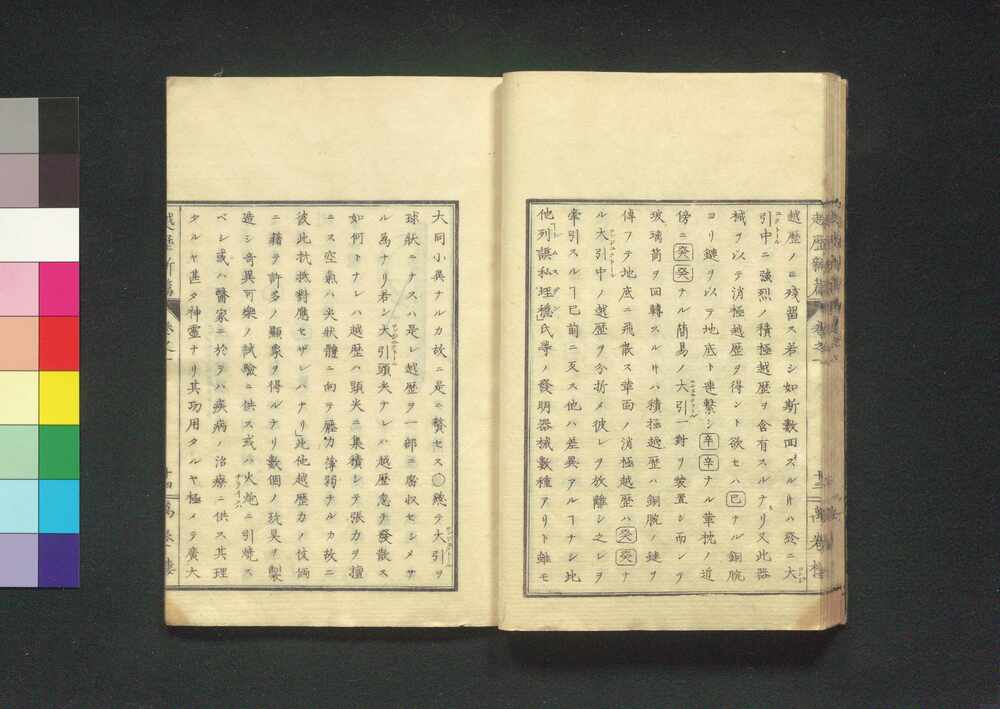 越歴ノミ殘留ス若シ如斯數回スル寸ハ終ニ大
引中ニ強烈ノ積極越歴ヲ含有スルナリ又此器
械ヲ以テ消極越歴ヲ得ント欲セハ己ナル銅腕
ヨリ鏈ヲ以テ地底ト連繫シ辛辛ナル革枕ノ近
傍ニ癸癸ナル簡易ノ大引一對ヲ裝置シ而シテ
玻璃筒ヲ回轉スル寸ハ積極越歴ハ銅腕ノ鏈ヲ
傳フテ地底ニ飛散ス革面ノ消極越歴ハ癸癸ナ
ル大引中ノ越歴ヲ分折メ彼レヲ放離シ之レヲ
牽引スルヿ已前ニ仝ス他ハ差異アルヿナシ此
他列謨私埋穏氏等ノ發明器械數種アリト雖モ
大同小異ナルカ故ニ是ニ贅セス○總テ大引ヲ
球狀ニナスハ是レ越歴ヲ一部ニ屠収セシメサ
ル爲ナリ若シ大引頭尖ナレハ越歴忽チ發散ス
如何トナレハ越歴ハ頭尖ニ集積シテ張力ヲ擅
ニス空氣ハ尖狀體ニ向テ壓力薄弱ナルカ故ニ
彼此抗抵對應セザレハナリ此他越歴カノ伎倆
ニ藉テ許多ノ顯象ヲ得ルナリ數個ノ玩具ヲ製
造シ奇異可樂ノ試驗ニ供ス或ハ火炮ニ引燒ス
ベシ或ハ醫家ニ於テハ疾病ノ治療ニ供ス其理
タルヤ甚タ神靈ナリ其功用タルヤ極メテ廣大